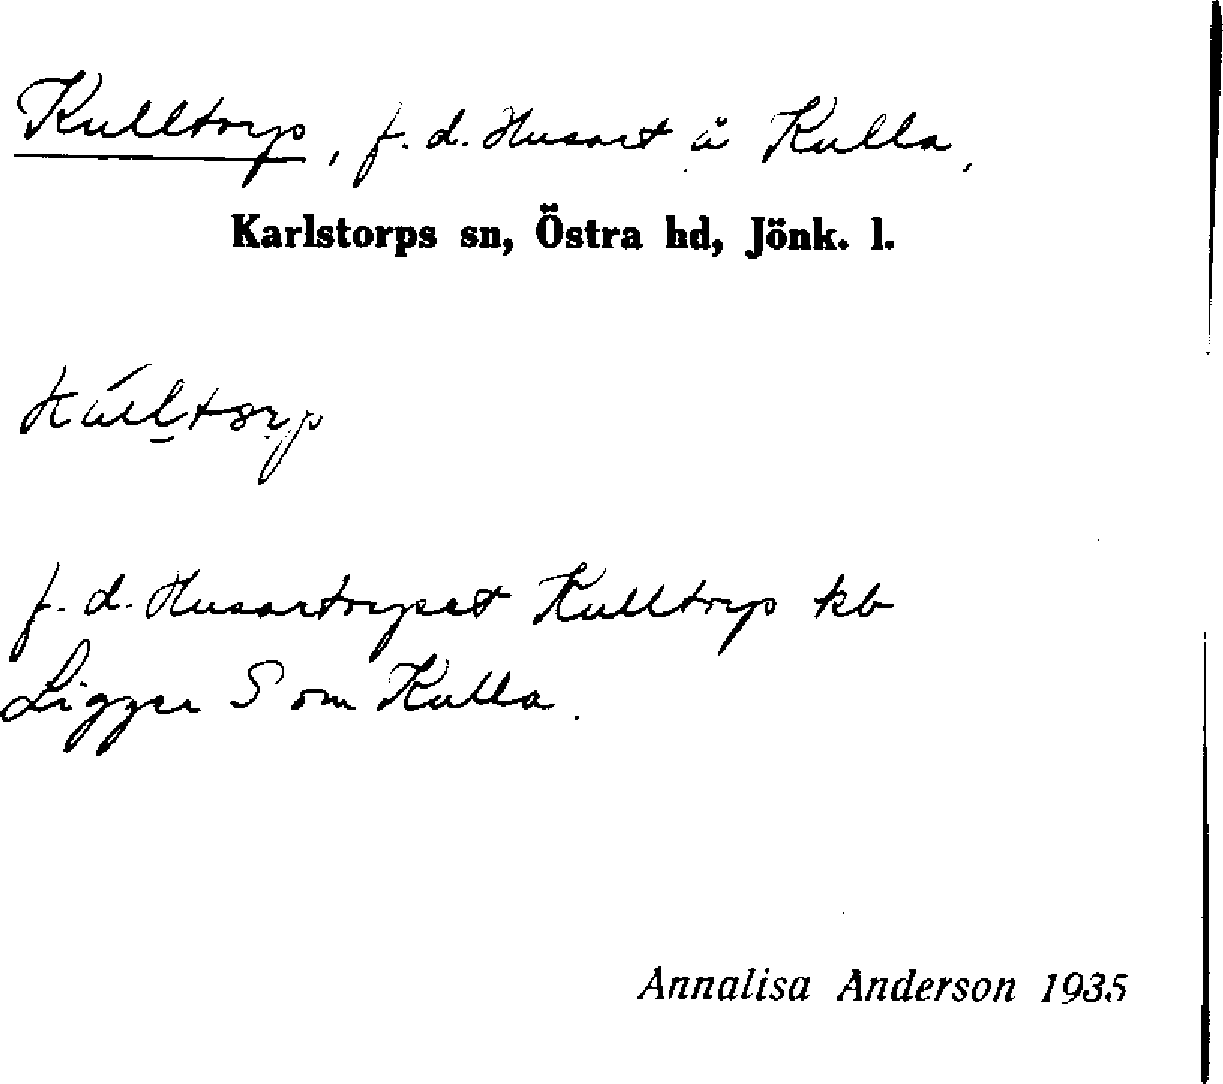 Kulltorp, f. d. Husart å Kulla,
Karlstorps sn, Östra hd, Jönk. l.
f. d. Husartorpet Kulltorp kb
Ligger S om Kulla.
Annalisa Anderson 1935